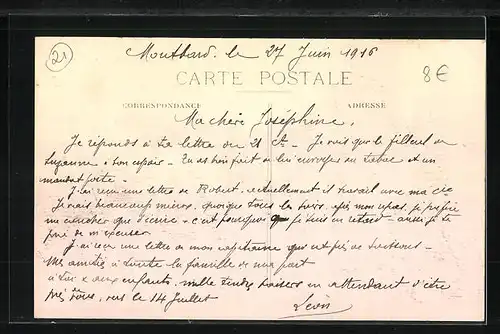 21
Montbard. le 27 Juin 1916
8€
CARTE POSTALE
CORRESPONDANCE
ADRESSE
Ma chère Joséphine,
Je réponds à ta lettre du 21 Ct - Je vois que le filleul de
Suzanne a bon espoir - Tu as bien fait de lui envoyer du tabac et un
mandat poste -
J'ai reçu une lettre de Robert, actuellement il travail avec ma Cie
Je vais beaucoup mieux, quoique tous les soirs, après mon repas, je préfère
me coucher que d'écrire - c'est pourquoi que je suis en retard - aussi je te
prie de m'excuser
J'ai reçu une lettre de mon capitaine qui est près de
Mes amitiés à toute la famille de ma part
à toi & aux enfants, mille tendres baisers en attendant d'être
près de vous, vers le 14 Juillet
Léon